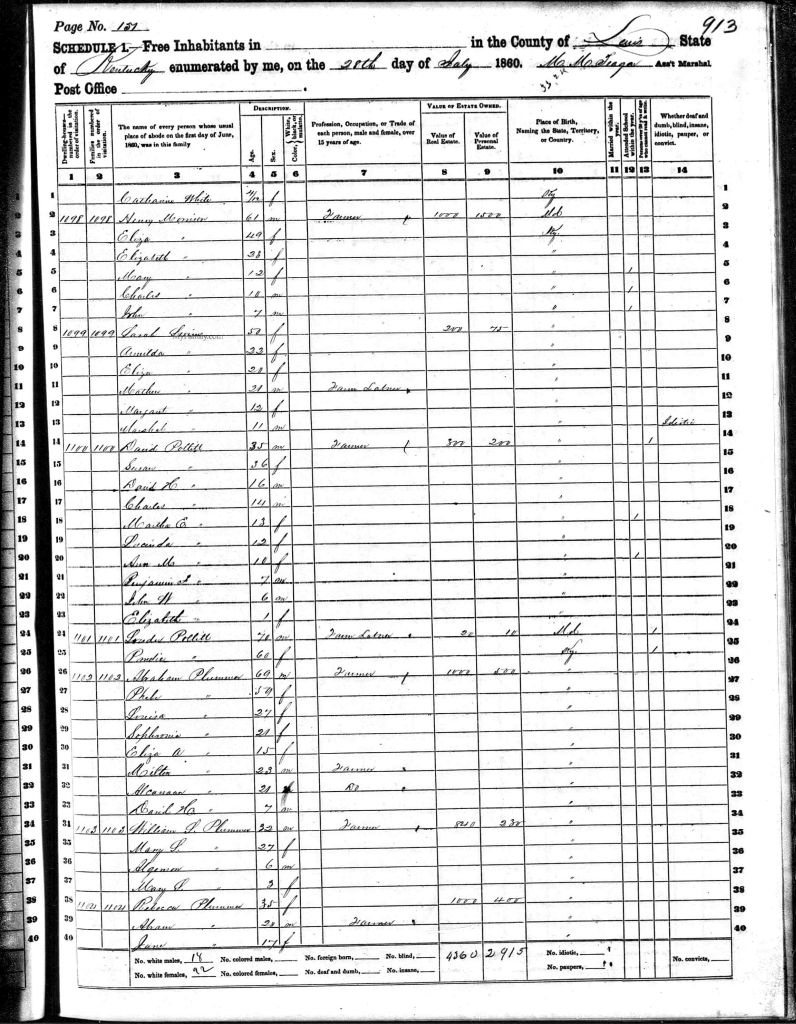 Page No. 137
913
SCHEDULE 1.—Free Inhabitants in in the County of Lewis State
of Kentucky enumerated by me, on the 28th day of July 1860. Ass't Marshal
Post Office
Dwelling-houses—numbered in the order of visitation.
Families numbered in the order of visitation.
The name of every person whose usual place of abode on the first day of June, 1860, was in this family
DESCRIPTION.
Age.
Sex.
Color, White, black, or mulatto.
Profession, Occupation, or Trade of each person, male and female, over 15 years of age.
VALUE OF ESTATE OWNED.
Value of Real Estate.
Value of Personal Estate.
Place of Birth, Naming the State, Territory, or Country.
Married within the year.
Attended School within the year.
Persons over 20 y'rs of age who cannot read & write.
Whether deaf and dumb, blind, insane, idiotic, pauper, or convict.
1 2 3 4 5 6 7 8 9 10 11 12 13 14
1 Catharine White f Ky 1
2 1098 1098 Henry 61 m Farmer 1000 1500 Md 2
3 Eliza " 49 f Ky 3
4 Elizabeth " 23 f " 4
5 Mary " 12 f " 1 5
6 Charles " 10 m " 1 6
7 John " 7 m " 1 7
8 1099 1099 Sarah 50 f 200 75 " 8
9 " 22 f " 9
10 Eliza " 20 f " 10
11 " 21 m Farm Laborer " 11
12 Margaret " 12 f " 12
13 Marshal " 11 m " Idiotic 13
14 1100 1100 David Pollitt 35 m Farmer 300 200 " 1 14
15 Susan " 36 f " 15
16 David H " 16 m " 16
17 Charles " 14 m " 17
18 Martha E " 13 f " 1 18
19 Lucinda " 12 f " 19
20 Ann M " 10 f " 1 20
21 Benjamin F " 7 m " 21
22 John W " 6 m " 22
23 Elizabeth " 1 f " 23
24 1101 1101 Pollitt 70 m Farm Laborer 20 10 Md 1 24
25 " 60 f Ky 1 25
26 1102 1102 Abraham Plummer 69 m Farmer 1000 500 " 26
27 Phebe " 59 f " 27
28 Louisa " 27 f " 28
29 Sophronia " 21 f " 29
30 Eliza A " 15 f " 30
31 Milton " 23 m Farmer " 31
32 " 21 Do " 32
33 David H " 7 m " 33
34 1103 1103 William S. Plummer 32 m Farmer 840 230 " 34
35 Mary S. " 27 f " 35
36 Algernon " 6 m " 36
37 Mary S " 3 f " 37
38 1104 1104 Rebecca Plummer 35 f 1000 400 " 38
39 Abram " 20 m Farmer " 39
40 Jane " 17 f " 40
No. white males, 18 No. colored males, No. foreign born, No. blind, 4360 2915 No. idiotic, 1 No. convicts,
No. white females, 22 No. colored females, No. deaf and dumb, No. insane, No. paupers,